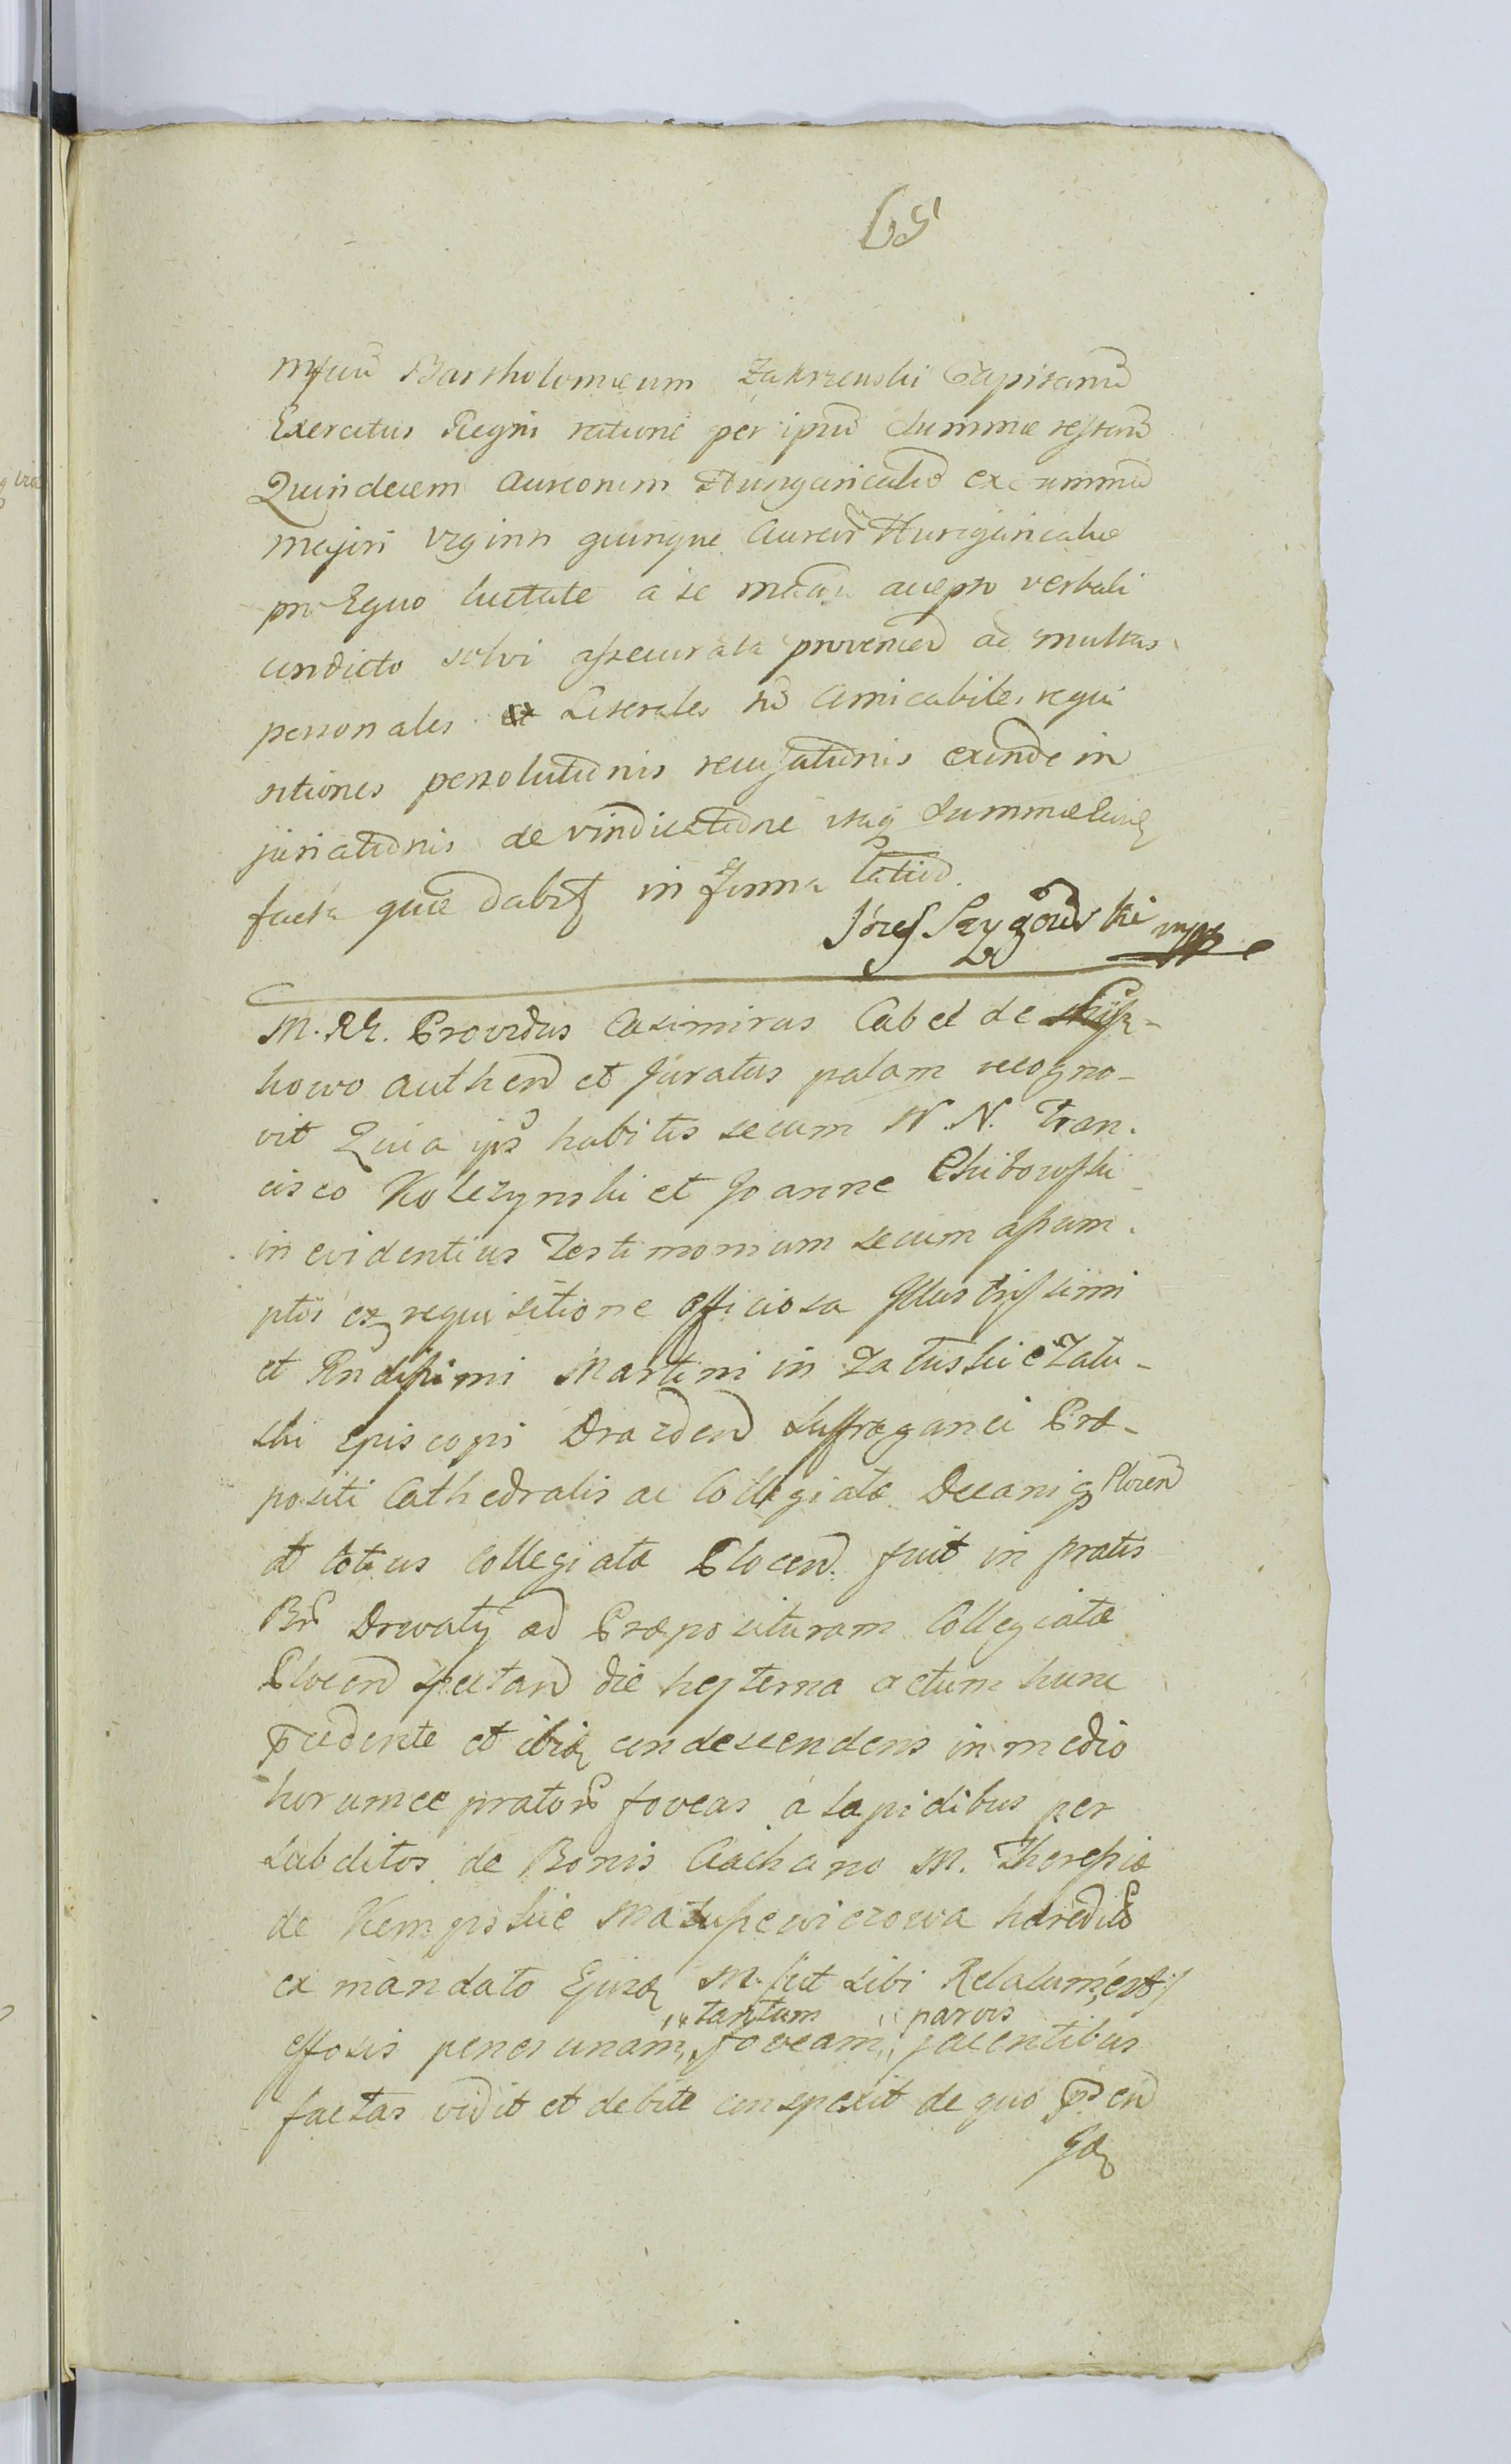 65
Bartholomeum Zakrzewski Capitaneū
Exercitus Regni ratione per ipsū Summæ restanō
Quindecem Aureorum Hungaricaliū ex summa
majori viginti quinque Aureor Hungaricalue
pro Equo luctate a se accepto verbali
condicto solvi assecurata proveniend ac multas
personales et Literales amicabiles requi
sitiones persolutionis recusationis exinde in
juriationis de vindicatione itaq Summæ
facta quæ dabitz in forma latiuō.
Józef Szygowski mppe
M. Rx. Providus Casimirus Cabel de
kowo authenō et Juratus palam recogno-
vit Quia ips habitis secum N. N. Fran-
cisco Kolczynski et Joanne Chibowski
in evidentius Testimonium secum assum-
ptis ex requisitione officiosa Illustrissimi
et Rndissimi Martini in Zatuskie Zatu-
ski Episcopi Drazdenō Suffraganei Præ-
positi Cathedralis ac Collegiatæ Decaniq Plocen
et totius Collegiatæ Plocenō. fuit in pratis
Br Drwaty ad Præposituram Collegiatæ
Plocenō spectanō die hesterna actum hunc
pcedente et ibiq condescendens in medio
horumce prator foveas a lapidibus per
Subditos de Bonis Ciachano M. Theresiæ
de Kempskie Matuszewiczowa hæredit
ex mandato Ejusd M. /ut sibi Relatum est/
effosis penes unam,, tantum foveam,, parvis jacentibus
factas vidit et debite conspexit de quo psenō